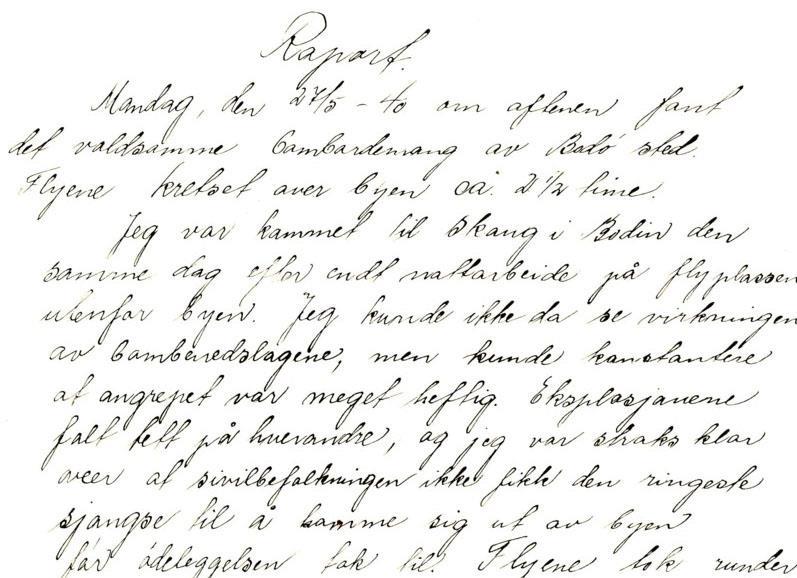 Raport.
Mandag, den 27/5 - 40 om aftenen fant
det voldsomme bombardemang av Bodø sted.
Flyene kretset over byen ca. 2 1/2 time.
Jeg var kommet til Skaug i Bodin den
samme dag efter endt nattarbeide på flyplassen
utenfor byen. Jeg kunde ikke da se virkningen
av bombenedslagene, men kunde konstantere
at angrepet var meget heftig. Eksplosjonene
falt tett på hverandre, og jeg var straks klar
over at sivilbefolkningen ikke fikk den ringeste
sjangse til å komme sig ut av byen
før ødeleggelsen tok til. Flyene tok runder